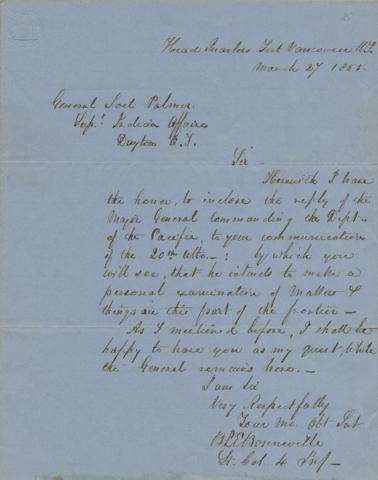 Head Quarters Fort Vancouver W.T.
March 27 1855.
General Joel Palmer.
Supt. Indian Affairs
Dayton O.T.
Sir -
Herewith I have
the honor, to inclose the reply of the
Major General Commanding the Dept.
of the Pacific, to your communication
of the 20th Ulto - : by which you
will see, that he intends to make a
personal examination of Matters &
things in this part of the frontier -
As I mentioned before, I shall be
happy to have you as my guest, while
the General remains here. -
I am Sir
Very Respectfully
Your Mo. Obt Svt
B L E Bonneville
Lt. Col. 4 Inf -